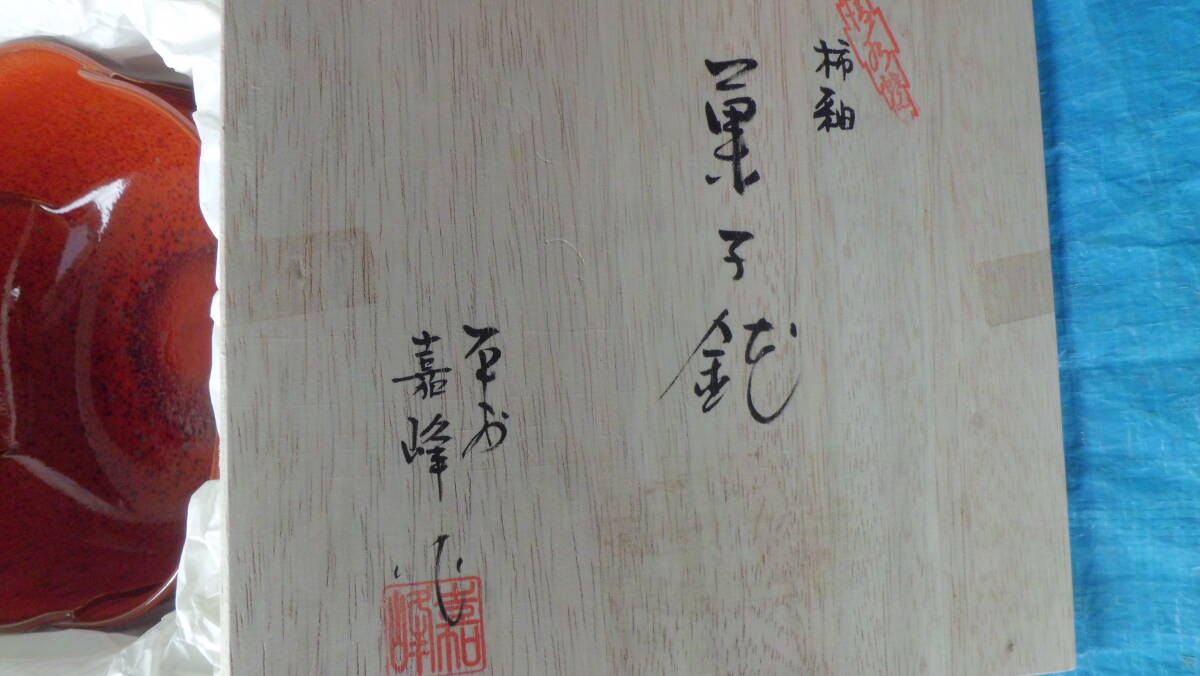 柿釉
菓子鉢
平安
嘉峰
嘉峰